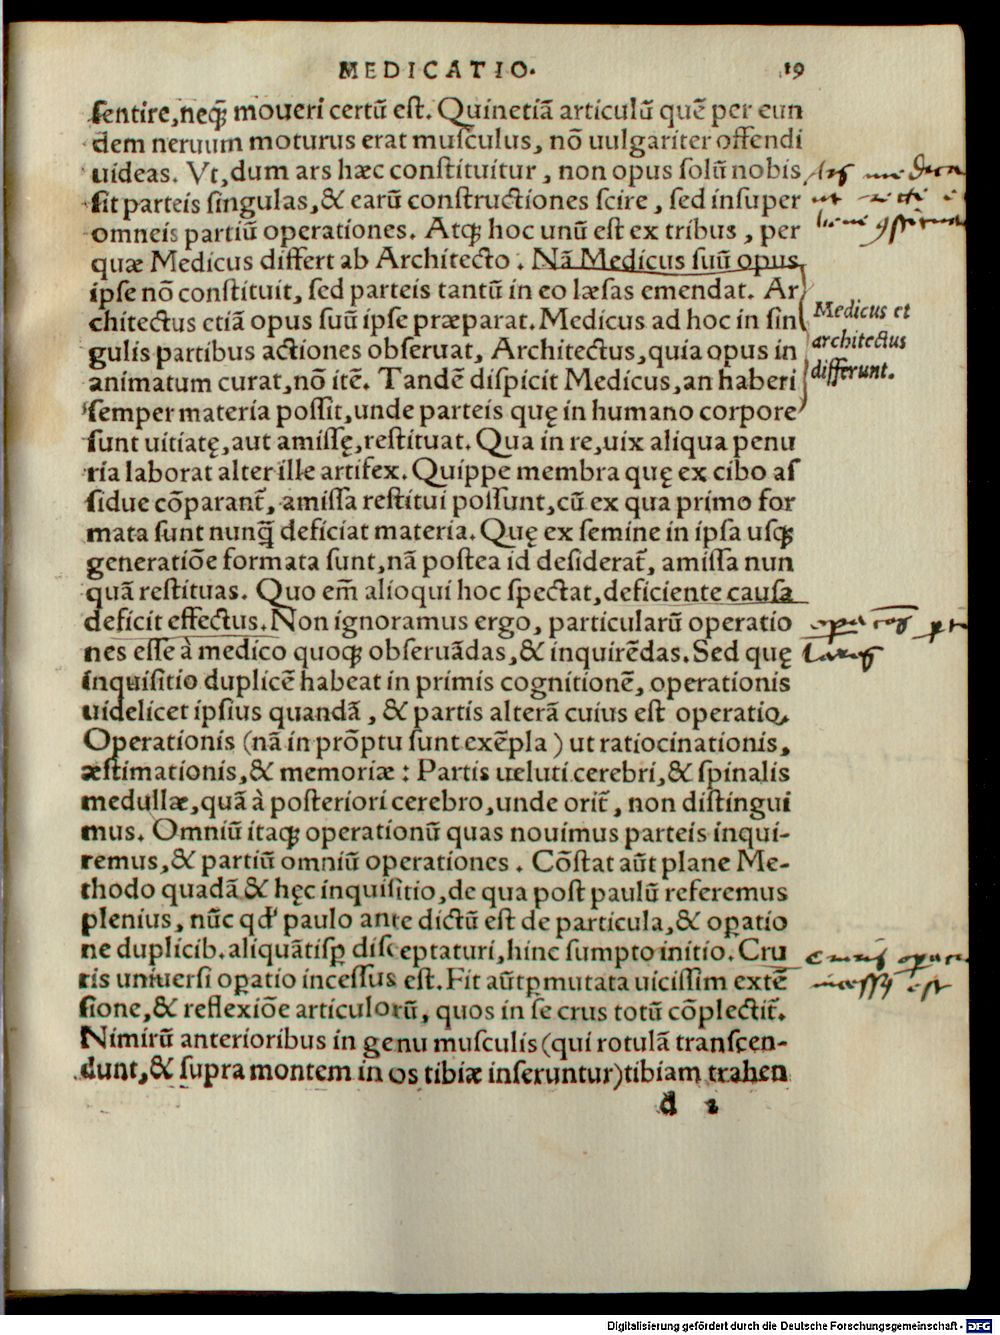 MEDICATIO. 19
sentire, neq̃ moueri certũ est. Quinetiã articulũ quẽ per eun
dem neruum moturus erat musculus, nõ uulgariter offendi
uideas. Vt, dum ars hæc constituitur, non opus solũ nobis
sit parteis singulas, & earũ constructiones scire, sed insuper
omneis partiũ operationes. Atqꝫ hoc unũ est ex tribus, per
quæ Medicus differt ab Architecto. Nã Medicus suũ opus
ipse nõ constituit, sed parteis tantũ in eo læsas emendat. Ar
chitectus etiã opus suũ ipse præparat. Medicus ad hoc in sin
gulis partibus actiones obseruat, Architectus, quia opus in
animatum curat, nõ itẽ. Tandẽ dispicit Medicus, an haberi
semper materia possit, unde parteis quę in humano corpore
sunt uitiatę, aut amissę, restituat. Qua in re, uix aliqua penu
ria laborat alter ille artifex. Quippe membra quę ex cibo as
sidue cõparant̃, amissa restitui possunt, cũ ex qua primo for
mata sunt nunq̃ deficiat materia. Quę ex semine in ipsa usqꝫ
generatiõe formata sunt, nã postea id desiderat̃, amissa nun
quã restituas. Quo em̃ alioqui hoc spectat, deficiente causa
deficit effectus. Non ignoramus ergo, particularũ operatio
nes esse à medico quoqꝫ obseruãdas, & inquirẽdas. Sed quę
inquisitio duplicẽ habeat in primis cognitionẽ, operationis
uidelicet ipsius quandã, & partis alterã cuius est operatio.
Operationis (nã in prõptu sunt exẽpla) ut ratiocinationis,
æstimationis, & memoriæ: Partis ueluti cerebri, & spinalis
medullæ, quã à posteriori cerebro, unde orit̃, non distingui
mus. Omniũ itaqꝫ operationũ quas nouimus parteis inqui-
remus, & partiũ omniũ operationes. Cõstat aũt plane Me-
thodo quadã & hęc inquisitio, de qua post paulũ referemus
plenius, nũc qđ paulo ante dictũ est de particula, & oꝑatio
ne duplicib. aliquãtisꝑ disceptaturi, hinc sumpto initio. Cru
ris uniuersi oꝑatio incessus est. Fit aũt ꝑmutata uicissim extẽ
sione, & reflexiõe articulorũ, quos in se crus totũ cõplectit̃.
Nimirũ anterioribus in genu musculis (qui rotulã transcen-
dunt, & supra montem in os tibiæ inseruntur) tibiam trahen
d 2
Medicus et
architectus
differunt.